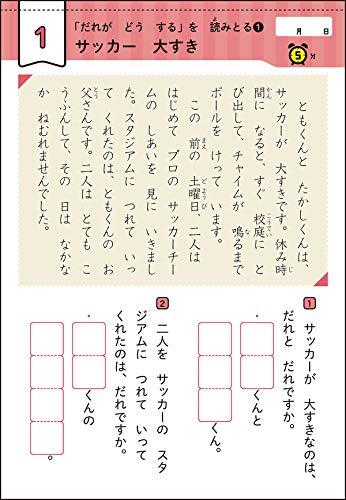 1
「だれが どう する」を 読みとる❶
サッカー 大すき
月 日
5分
ともくんと たかしくんは、
サッカーが 大すきです。休み時
間に なると、すぐ 校庭に と
び出して、チャイムが 鳴るまで
ボールを けって います。
この 前の 土曜日、二人は
はじめて プロの サッカーチー
ムの しあいを 見に いきまし
た。スタジアムに つれて いっ
て くれたのは、ともくんの お
父さんです。二人は とても こ
うふんして、その 日は なかな
か ねむれませんでした。
1 サッカーが 大すきなのは、
だれと だれですか。
くんと
くん。
2 二人を サッカーの スタ
ジアムに つれて いって
くれたのは、だれですか。
くんの
。